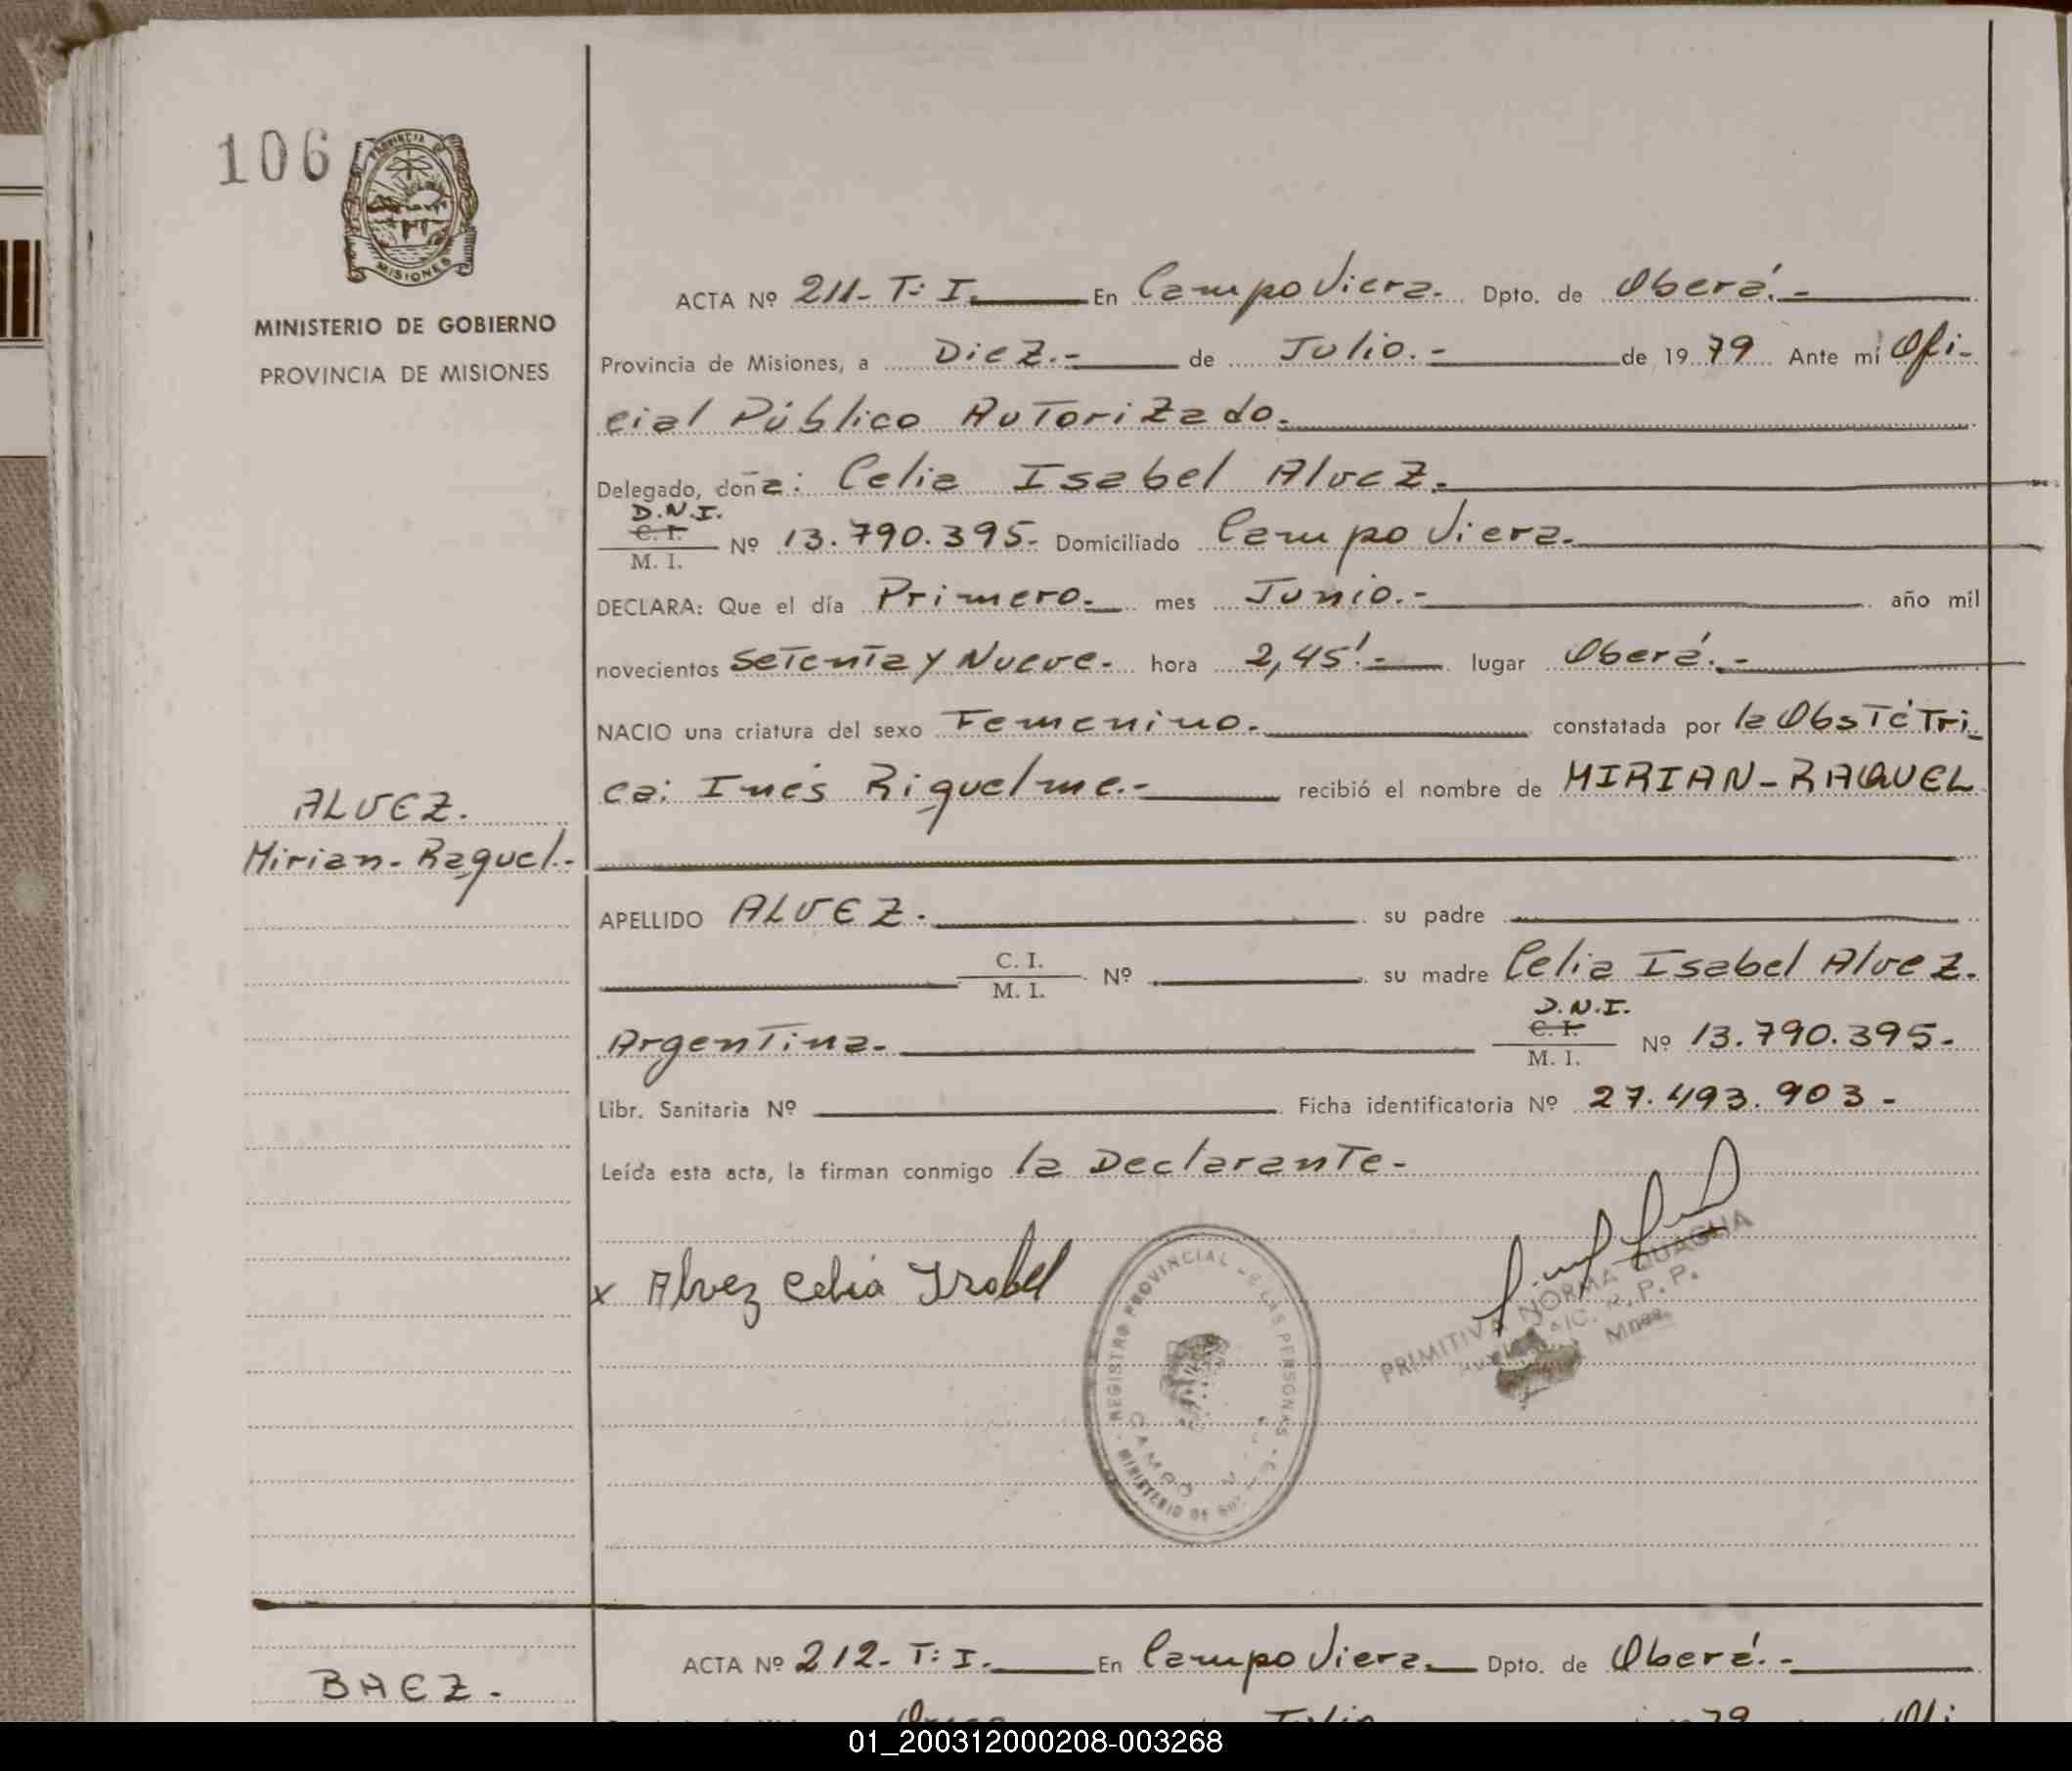 106
PROVINCIA DE
MISIONES
MINISTERIO DE GOBIERNO
PROVINCIA DE MISIONES
ACTA Nº 211- T: I. En Campo Viera. Dpto. de Oberá.-
Provincia de Misiones, a Diez.- de Julio.- de 1979 Ante mí Ofi-
cial Público Autorizado.
Delegado, doña: Celia Isabel Alvez.
D.N.I.
C. I.
M. I. Nº 13.790.395- Domiciliado Campo Viera.
DECLARA: Que el día Primero.- mes Junio.- año mil
novecientos Setenta y Nueve. hora 2,45'- lugar Oberá.-
NACIO una criatura del sexo Femenino. constatada por la Obstétri-
ca: Inés Riquelme.- recibió el nombre de MIRIAN-RAQUEL
ALVEZ.
Mirian-Raquel.-
APELLIDO ALVEZ. su padre
C. I.
M. I. Nº su madre Celia Isabel Alvez.
Argentina.
D.N.I.
C. I.
M. I. Nº 13.790.395-
Libr. Sanitaria Nº Ficha identificatoria Nº 27.493.903-
Leída esta acta, la firman conmigo la Declarante-
x Alvez Celia Isabel
REGISTRO PROVINCIAL DE LAS PERSONAS
CAMPO
MINISTERIO DE
PRIMITIVA NORMA QUAGLIA
R. P. P.
Mnes.
ACTA Nº 212- T: I. En Campo Viera. Dpto. de Oberá.-
BAEZ.
Once Julio 79 Ofi
01_200312000208-003268